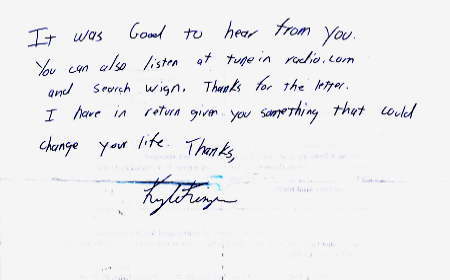 It was Good to hear from you.
You can also listen at tunein radio.com
and search wign. Thanks for the letter.
I have in return given you something that could
change your life. Thanks,